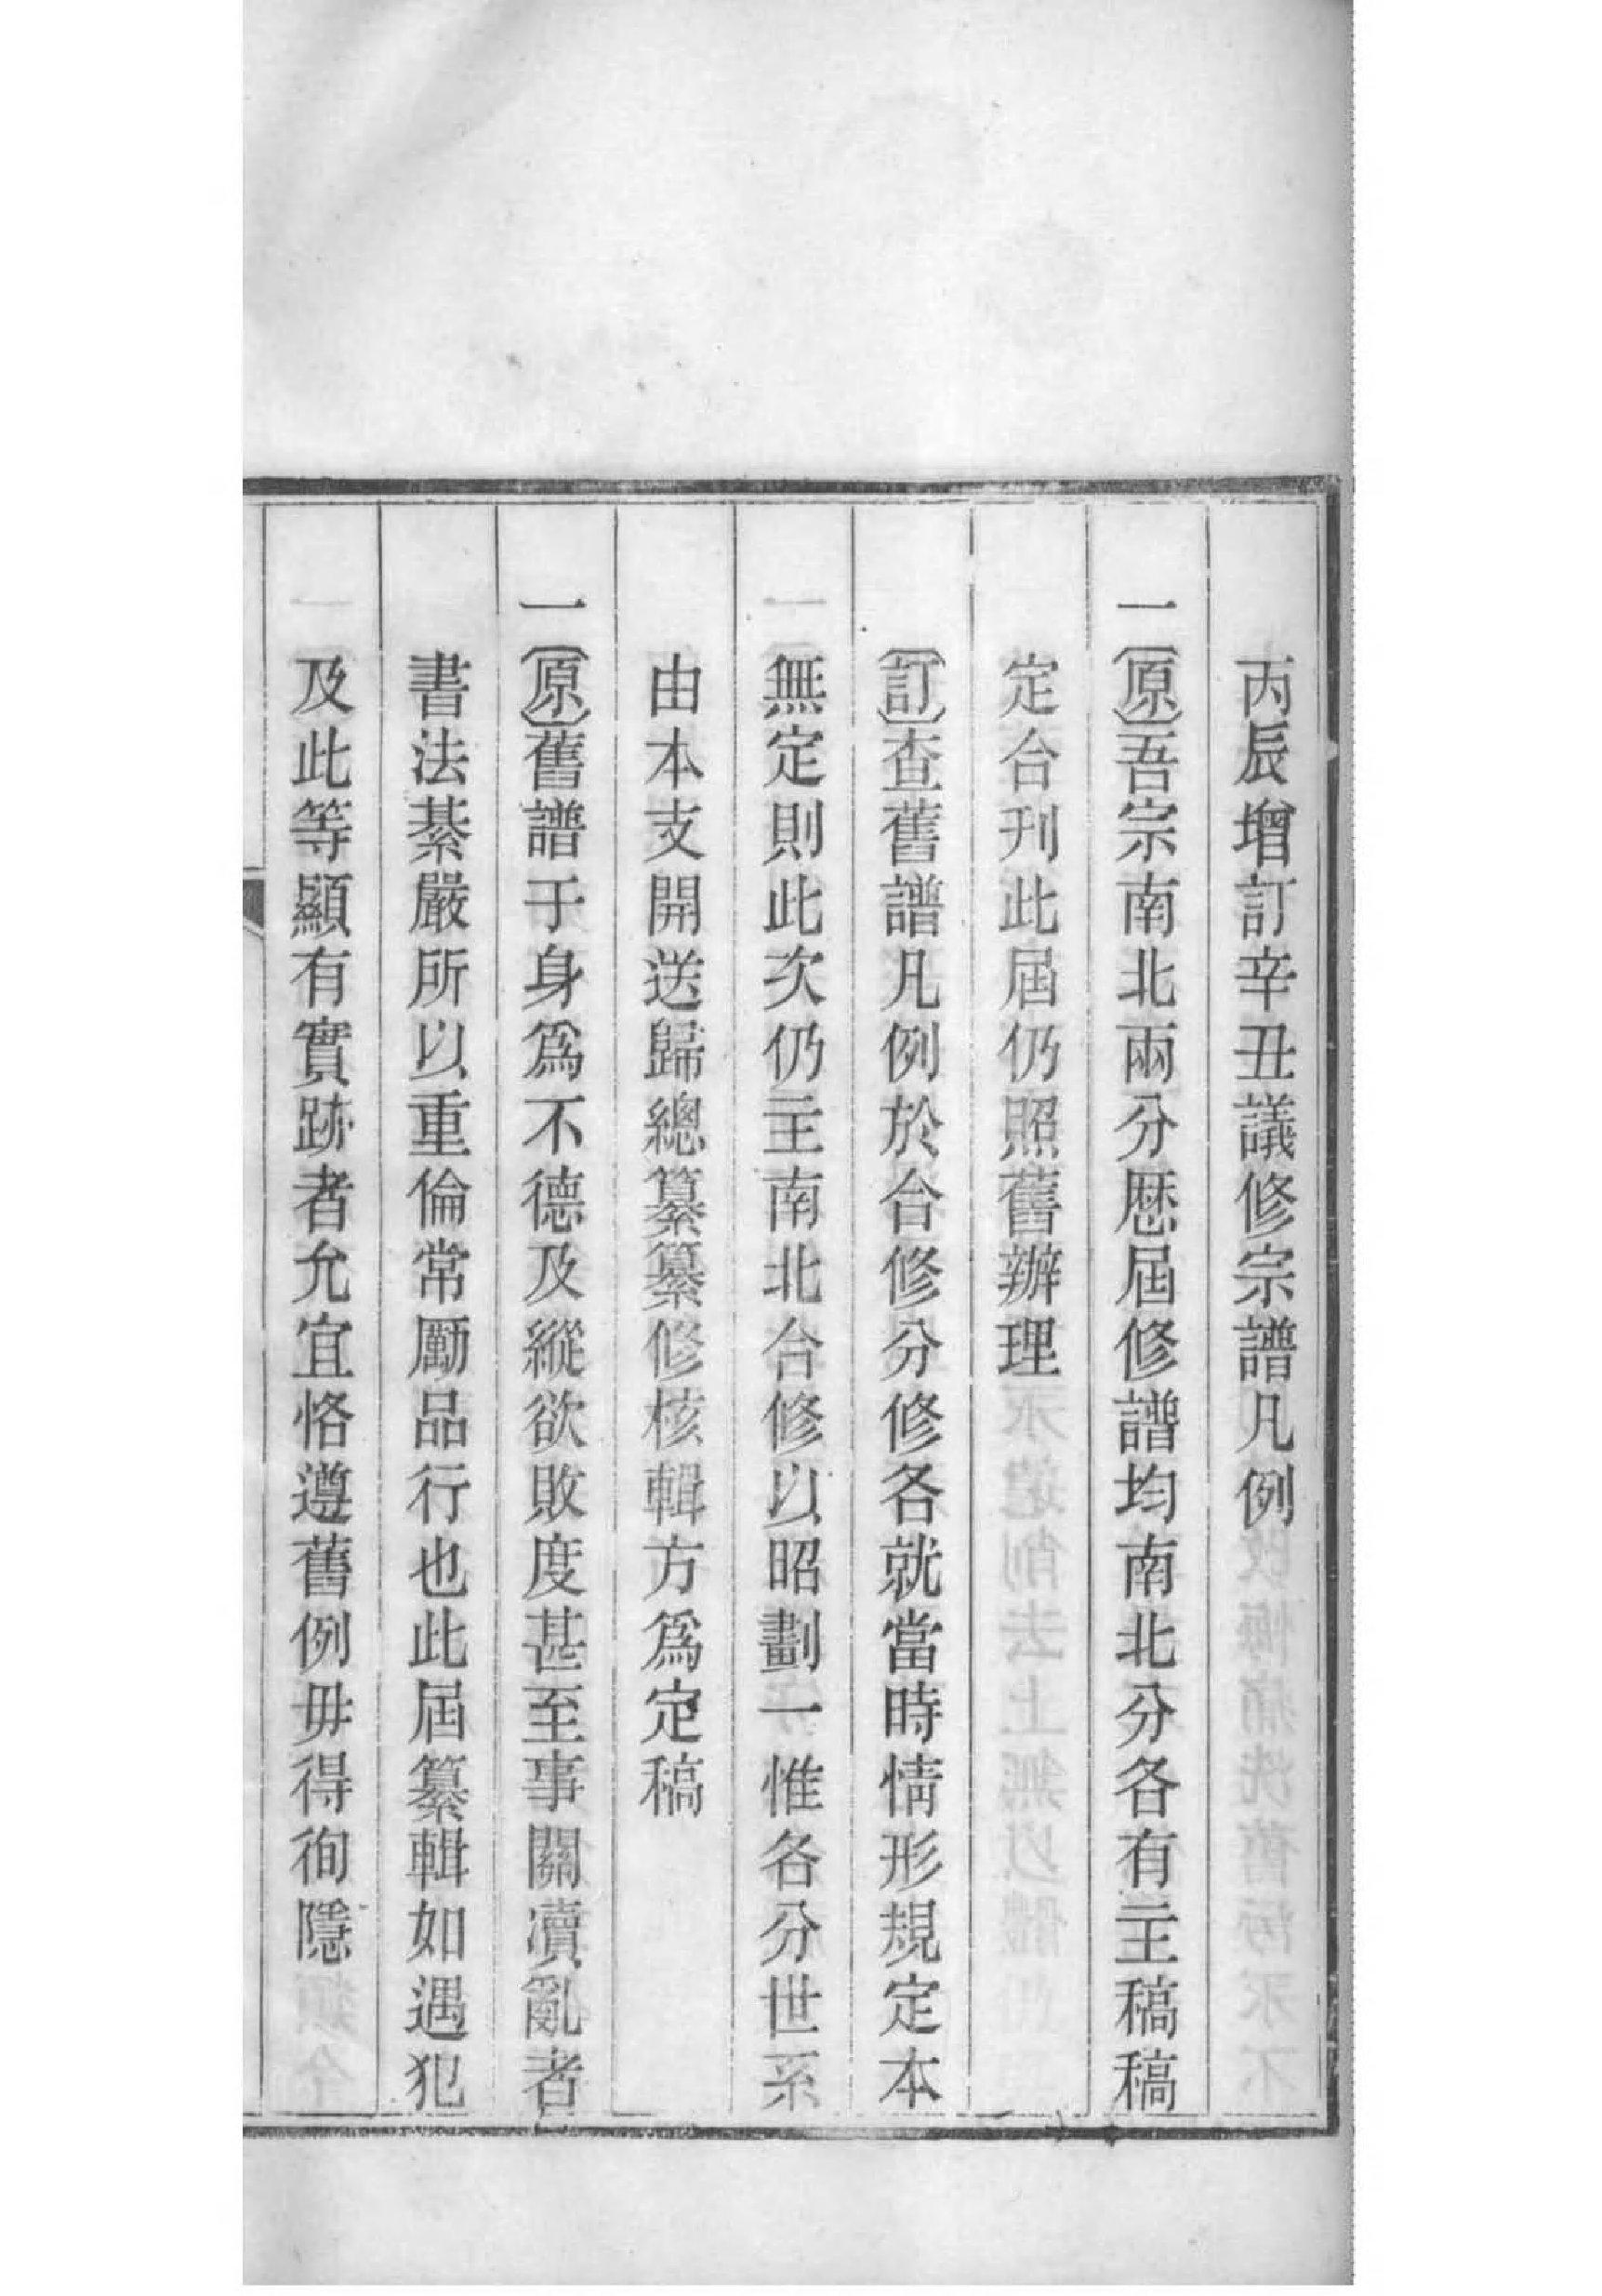 丙辰增訂辛丑議修宗譜凡例
一〔原〕吾宗南北兩分歷屆修譜均南北分各有主稿稿
定合刊此屆仍照舊辦理
〔訂〕查舊譜凡例於合修分修各就當時情形規定本
無定則此次仍主南北合修以昭劃一惟各分世系
由本支開送歸總纂纂修核輯方爲定稿
一〔原〕舊譜于身爲不德及縱欲敗度甚至事關瀆亂者
書法綦嚴所以重倫常勵品行也此屆纂輯如遇犯
及此等顯有實跡者允宜恪遵舊例毋得徇隱